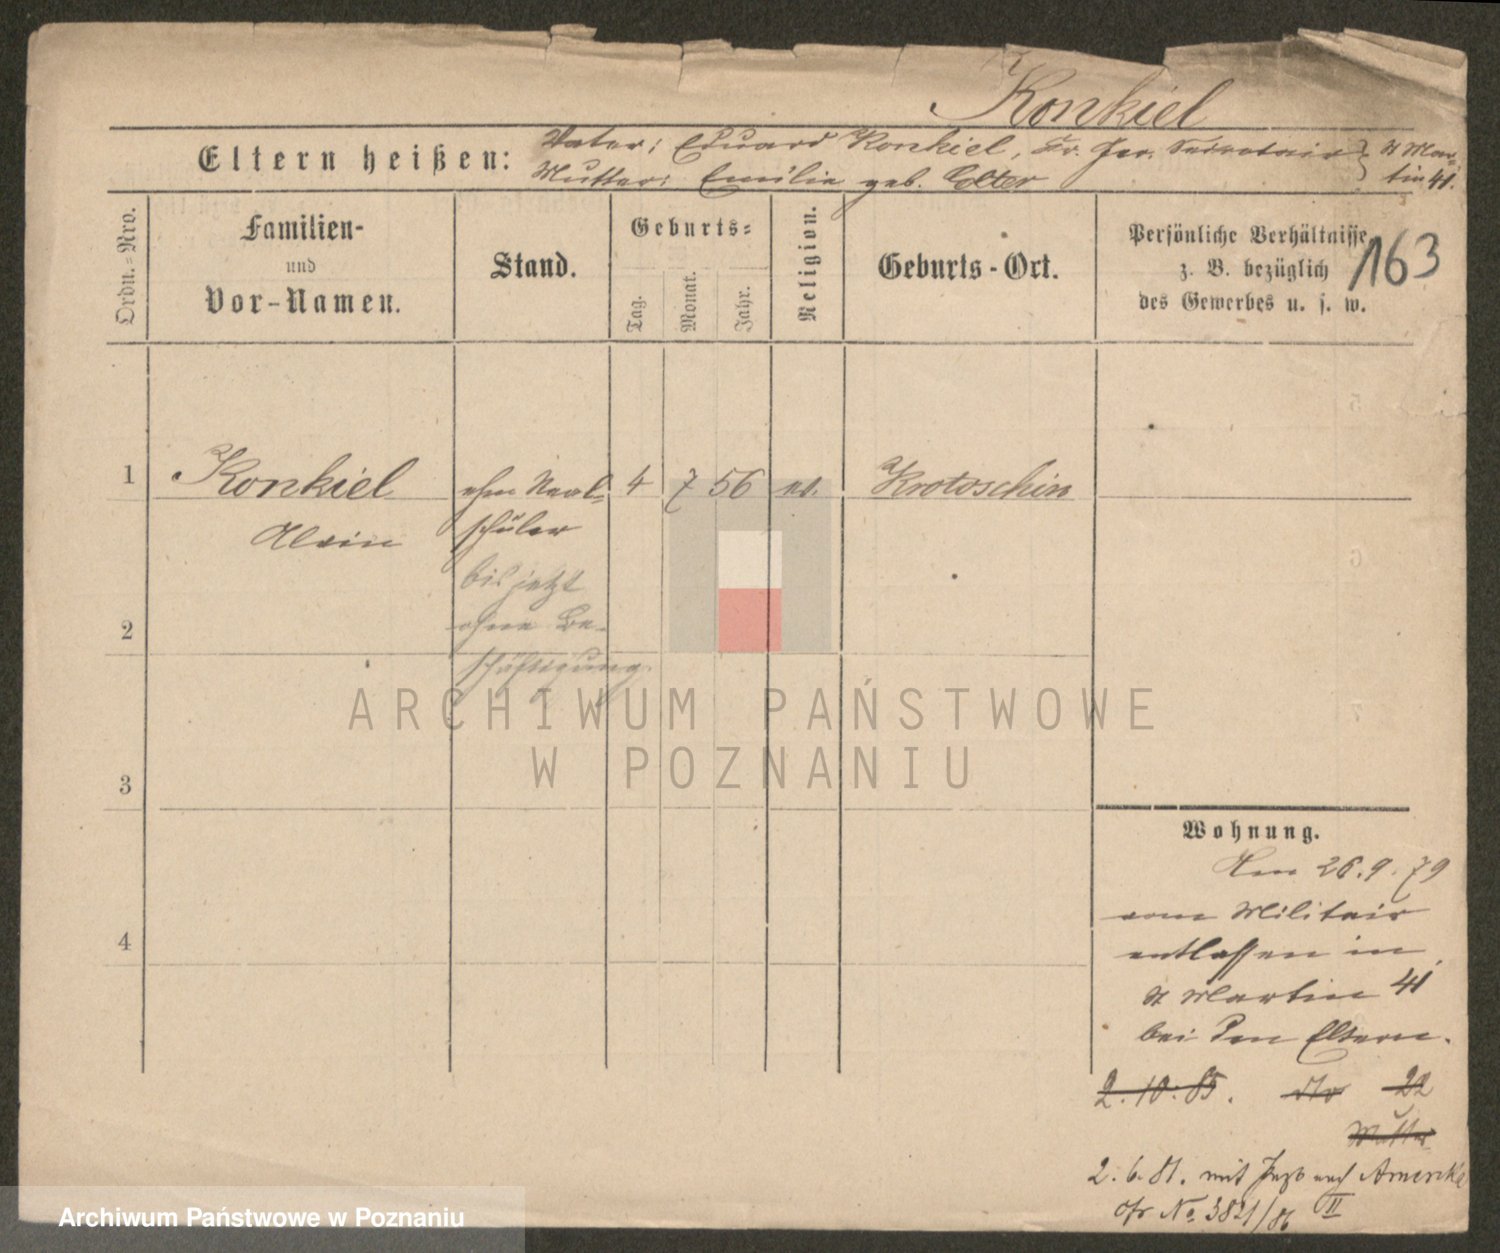 Konkiel
Eltern heißen:
Vater: Eduard Konkiel, Kr. Ger. Secretair
Mutter: Emilie geb. Colter
St Mar-
tin 41.
Ordn.=Nro.
Familien-
und
Vor-Namen.
Stand.
Geburts=
Tag.
Monat.
Jahr.
Religion.
Geburts-Ort.
Persönliche Verhältnisse
z. B. bezüglich
des Gewerbes u. s. w.
163
1 Konkiel ehm Real- 4 7 56 ev. Krotoschin
Alvin schüler
bis jetzt
2 ohne Be-
schäftigung
3
4
Wohnung.
Am 26.9.79
vom Militair
entlassen in
St Martin 41
bei den Eltern.
2.10.85. 22
Mutter
2.6.81. mit nach Amerika
No 3821/86 II
ARCHIWUM PAŃSTWOWE
W POZNANIU
Archiwum Państwowe w Poznaniu